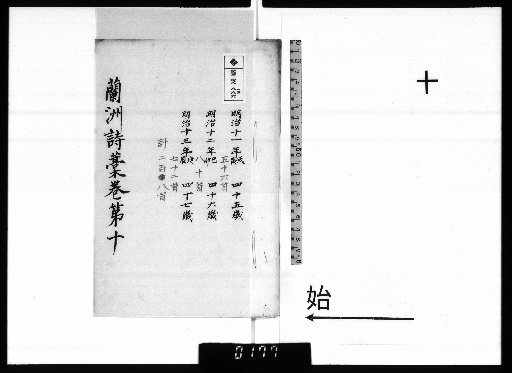 十
明治十一年戊寅 四十五歳
五十六首
明治十二年己卯 四十六歳
八十首
明治十三年庚辰 四十七歳
七十二首
計 二百八首
蘭洲詩藁巻第十
始
0177